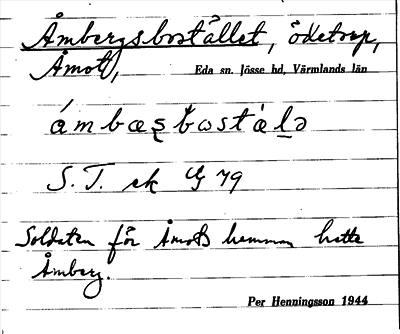 Åmbergsbostället, ödetorp,
Åmot, Eda sn. Jösse hd, Värmlands län
ámbæʂbωstàḷə
S. T. ek G 79
Soldaten för Åmots hemman hette
Åmberg.
Per Henningsson 1944